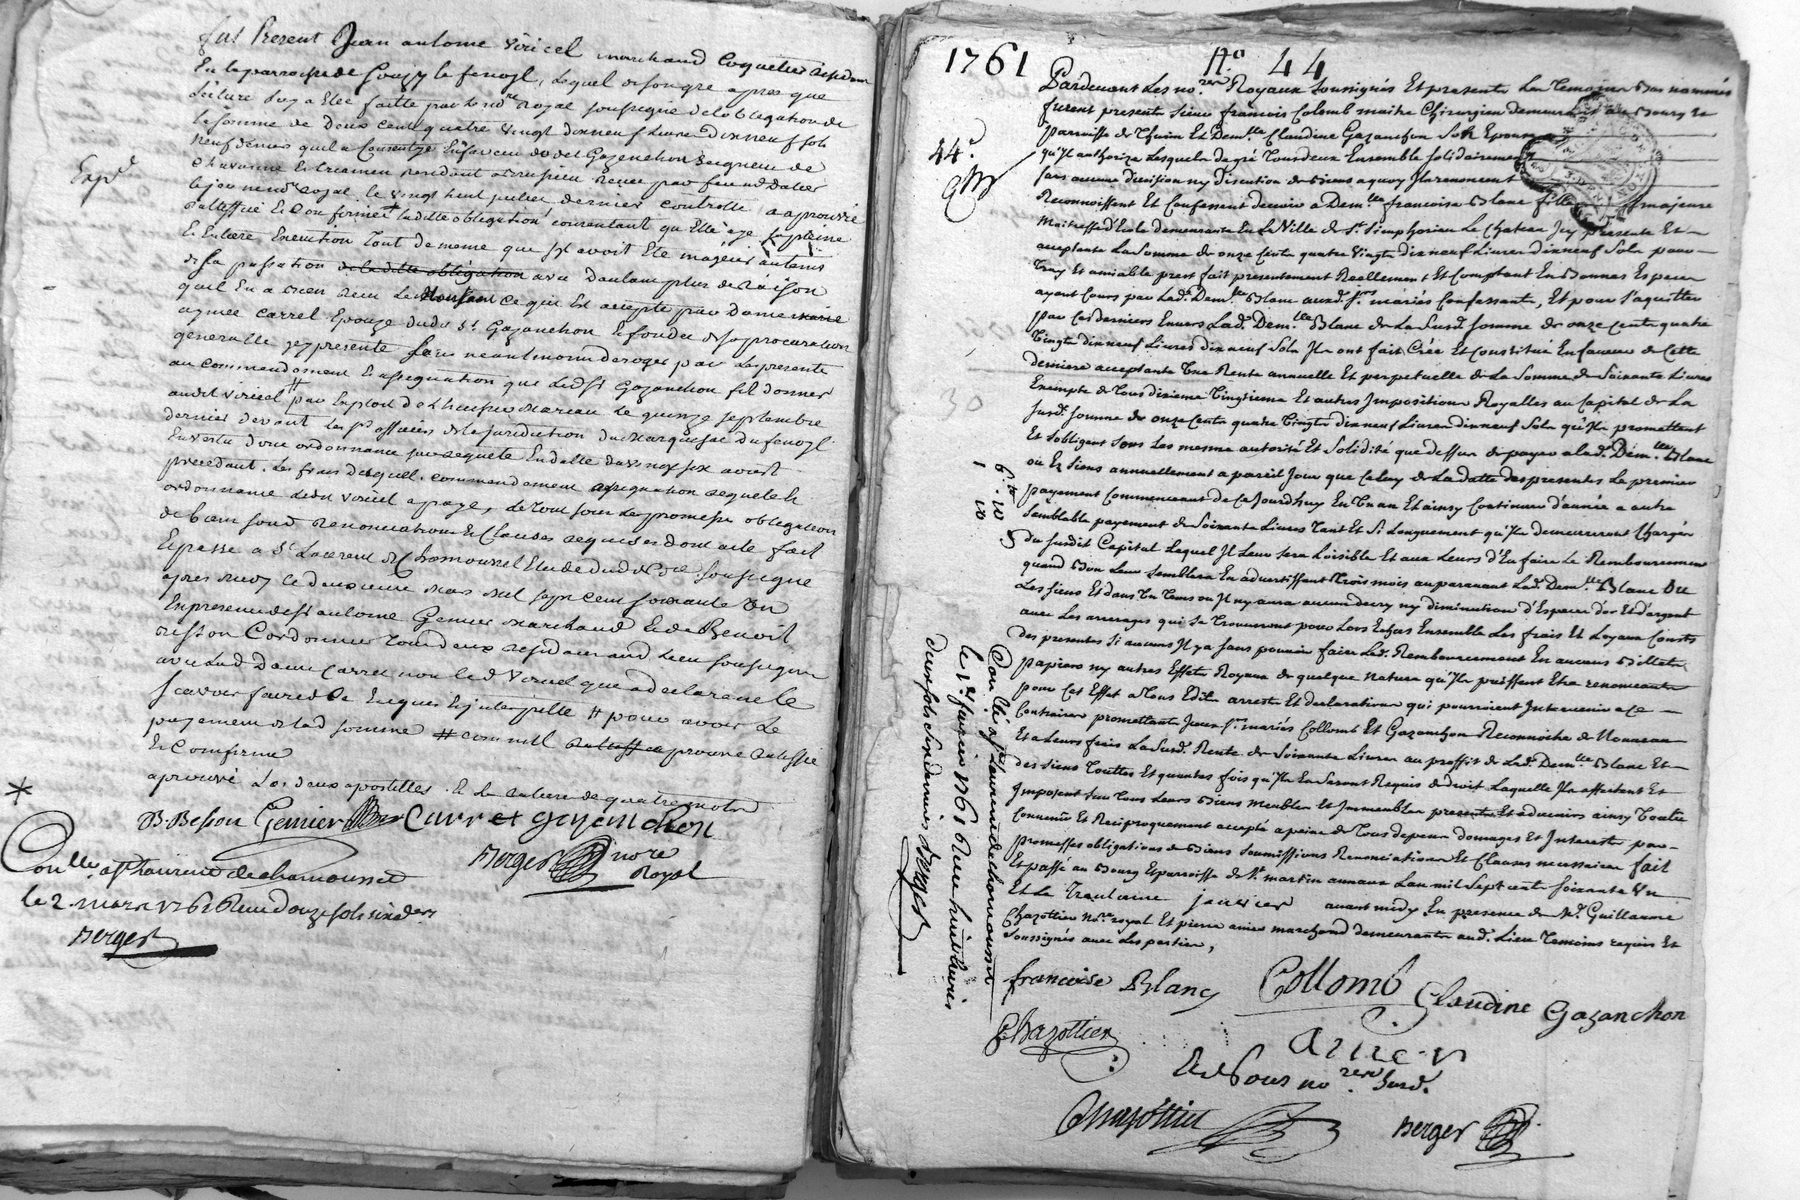 fut Present Jean antoine Viricel marchand Coquetier
En la parroisse de le fenoyl, Lequel de son gre apres que
Lecture Luy a Eteé faitte par le no.re Royal soussigné de l'obligation de
la somme de Deux Cent quatre Vingt dixneuf Livres Dixneuf sols
Neuf deniers quil a Consentye En faveur Gazanchon Seigneur de
Exp.d
Chavanne
le vingt huit dernier Controllé a aprouvé
Confirmé laditte obligation consentant qu'Elle aye sa pleine
Et Entiere Execution Tout de meme que s'yl avoit Ete majeur au tems
de sa passation de laditte obligation avec Dautant plus de Raison
quil En a bien Receu Le Montant ce qui Est accepté par Dame marie
aymée Carrel Epouze dudit S.r Gazanchon Et fondée de sa procuration
generalle ycy presente sans neantmoins deroger par Les presente
au commendement Et assignation que Ledit S.r Gazanchon fit donner
audit Viricel par Exploit de L'huissier le quinze septembre
dernier devant Les s.rs officiers de la Juridiction du Marquisat du fenoyl
En vertu d'une ordonnance sur Requete En datte du six avril
precedant, Les frais desquels, commendement assignation Requete Et
ordonnance Ledit Viricel a payé, Le tout sous Les promesse obligation
de biens soumis Renonciation Et Clauses Requises dont acte fait
Et passé a S.t Laurent de Chamousset Etude dudit No.re soussigné
apres midy le deuxieme mars mil sept cent soixante Un
En presence de S.r antoine Genier Marchand Et de Benoit
Besson Cordonnier Tous deux Residans aud. Lieu soussignés
avec lad. Dame Carrel non led. Viricel que a declaré ne le
scavoir faire de Ce requis Et interpellé # pour avoir Le
payement de lad. somme # comme il aprouvé
Et Confirme
aprouvé Les deux apostilles Et La rature de quatre mots
B. Besson Genier Carret gazanchon
Berger no.re Royal
*
Con.lle a S.t Laurent de chamousset
le 2. mars 1761 Reçu Douze sols six den.rs
Berger
1761 N.o 44
Pardevant Les no.res Royaux Soussignés Et presents Les Temoins Bas nommés
furent presents Sieur françois Colomb maitre Chirurgien demeurant au Bourg Et
parroisse de Thurin Et Dem.lle Claudine Gazanchon Son Epouse
44.e
qu'Il authorize Lesquels de gré Tous deux Ensemble solidairement
sans aucune division ny discution de Biens a quoy Ils renoncent
Reconnoissent Et Confessent devoir a Dem.lle francoise Blanc fille majeure
Maitresse d'Ecole demeurante En La Ville de S.t Simphorien Le Chateau Icy presente Et
acceptante La Somme de onze Cents quatre Vingts dixneuf Livres dixneuf Sols pour
Vray Et amiable prest fait presentement Reellement Et Comptant En Bonnes Especes
ayant Cours par Lad. Dem.lle Blanc auxd. s.rs mariés Confessants, Et pour s'aquitter
par Ces derniers Envers Lad. Dem.lle Blanc de La Susd. Somme de onze Cents quatre
Vingts dixneuf Livres dixneuf Sols Ils ont fait Crée Et Constitué En faveur de Cette
derniere acceptante Une Rente annuelle Et perpetuelle de La Somme de Soixante Livres
Exempte de Tous dixieme Vingtieme Et autres Impositions Royalles au Capital de La
Susd. Somme de onze Cents quatre Vingts dixneuf Livres dixneuf Sols qu'Ils promettent
Et s'obligent Sous Les mesme autorité Et Solidité que dessus de payer a lad. Dem.lle Blanc
ou Ez Siens annuellement a pareil Jour que Celuy de La datte des presentes Le premier
payement Commenceant de Ce Jourdhuy En Un an Et ainsy Continuer d'année a autre
Semblable payement de Soixante Livres Tant Et Si Longuement qu'Ils demeureront Chargés
du Susdit Capital Lequel Il Leur Sera Loisible Et aux Leurs d'En faire Le Remboursement
quand Bon Leur Semblera En advertissant Trois mois auparavant Lad. Dem.lle Blanc Ou
Les Siens Et dans Un Tems ou Il ny aura aucun decry ny diminution d'Especes d'or Et d'argent
avec Les arrerages qui Se Trouveront pour Lors Echus Ensemble Les frais Et Loyaux Cousts
des presentes Si aucuns Il y a Sans pouvoir faire Led. Remboursement En aucuns Billets
papiers ny autres Effets Royaux de quelque Nature qu'Ils puissent Etre renonceants
pour Cet Effet a Tous Edits arrests Et declarations qui pourroient Intervenir a Ce
Contraires promettants Iceux s.rs mariés Collomb Et Gazanchon Reconnoitre de Nouveau
Et a Leurs frais La Susd. Rente de Soixante Livres au proffit de Lad. Dem.lle Blanc Et
des Siens Touttes Et quantes fois qu'Ils En Seront Requis de droit Laquelle Ils affectent Et
Imposent Sur Tous Leurs Biens meubles Et Immeubles presents Et advenirs ainsy Toutte
Convenu Et Reciproquement accepté a peine de Tous depens domages Et Interests par
promesses obligations de Biens Soumissions Renonciations Et Clauses necessaires fait
Et passé au Bourg Et parroisse de S.t martin annaux L'an mil Sept cent Soixante Un
Et Le Trentieme janvier avant midy En presence de M.e Guillaume
Chazottier No.re royal Et pierre amier marchand demeurants aud. Lieu Temoins requis Et
Soussignés avec Les parties,
6.tt 10
1 10
Con.lle a S.t Laurent de chamousset
le 1.er fevrier 1761 Reçu huit livres
deux sols six deniers Berger
francoise Blanc Collomb Claudine Gazanchon
Chazottier
amier
Et de Nous no.res Susd.
Chazottier Berger